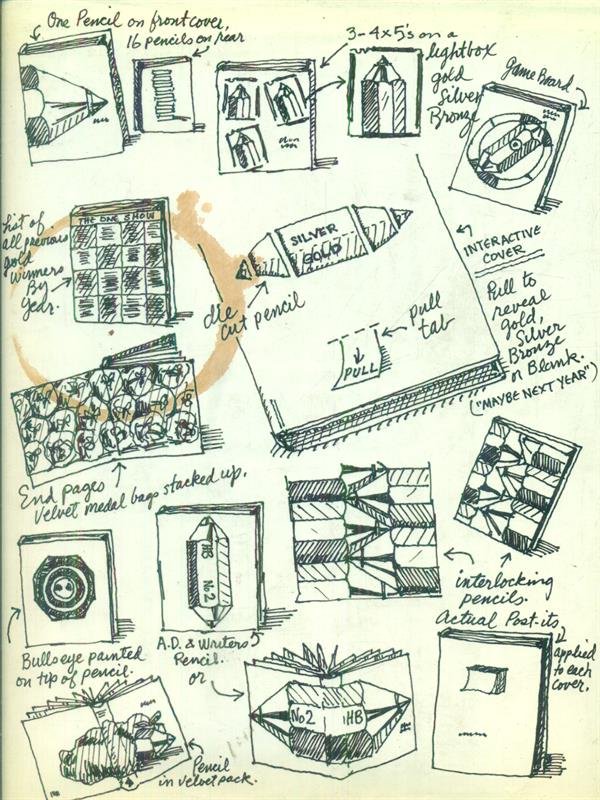 One Pencil on front cover,
16 pencils on rear
3-4x5's on a
lightbox
gold
Silver
Bronze
Game Board
List of
all previous
gold
Winners
By
Year.
THE ONE SHOW
SILVER
GOLD
die
cut pencil
pull
tab
PULL
INTERACTIVE
COVER
Pull to
reveal
gold,
Silver
Bronze
or Blank.
("MAYBE NEXT YEAR")
End pages
Velvet medal bags stacked up.
HB
No 2
interlocking
pencils.
Bullseye painted
on tip of pencil.
A.D. & Writers
Pencil.
or
No2 HB
Actual Post-its
applied
to each
cover.
Pencil
in velvet pack.